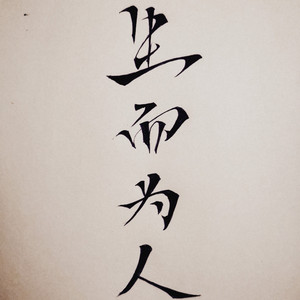 生而为人